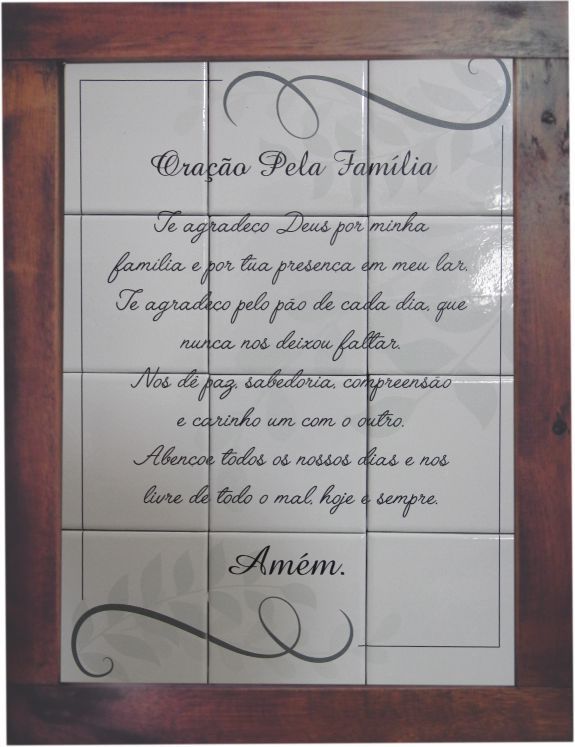 Oração Pela Família
Te agradeço Deus por minha
familia e por tua presença em meu lar.
Te agradeço pelo pão de cada dia, que
nunca nos deixou faltar.
Nos dê paz, sabedoria, compreensão
e carinho um com o outro.
Abençoe todos os nossos dias e nos
livre de todo o mal, hoje e sempre.
Amém.